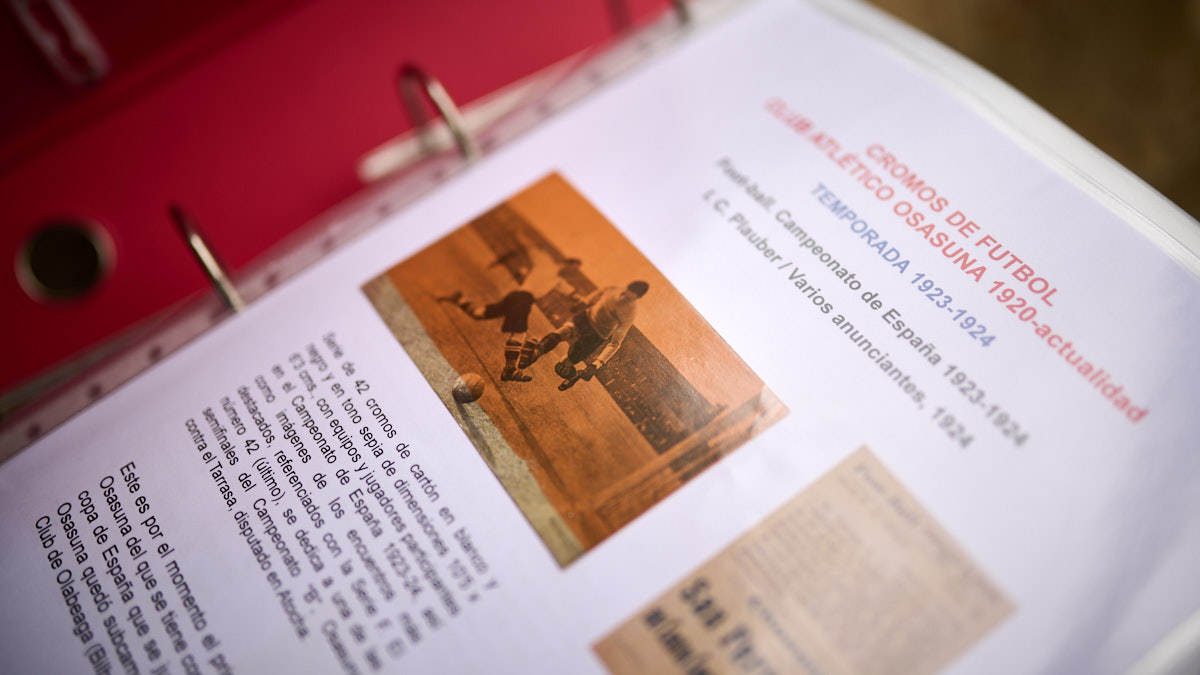 CROMOS DE FUTBOL
CLUB ATLÉTICO OSASUNA 1920-actualidad
TEMPORADA 1923-1924
Foot-ball. Campeonato de España 1923-1924
I. C. Plauber / Varios anunciantes, 1924
Serie de 42 cromos de cartón en blanco y
negro y en tono sepia de dimensiones 10'5 x
6'3 cms., con equipos y jugadores participantes
en el Campeonato de España 1923-24, así
como imágenes de los encuentros más
destacados, referenciados con la Serie F. El
número 42 (último), se dedica a una de las
semifinales del Campeonato "B", Osasuna
contra el Tarrasa, disputado en Atocha.
Este es por el momento el
Osasuna del que se tiene
copa de España que se
Osasuna quedó
Club de Olabeaga
San